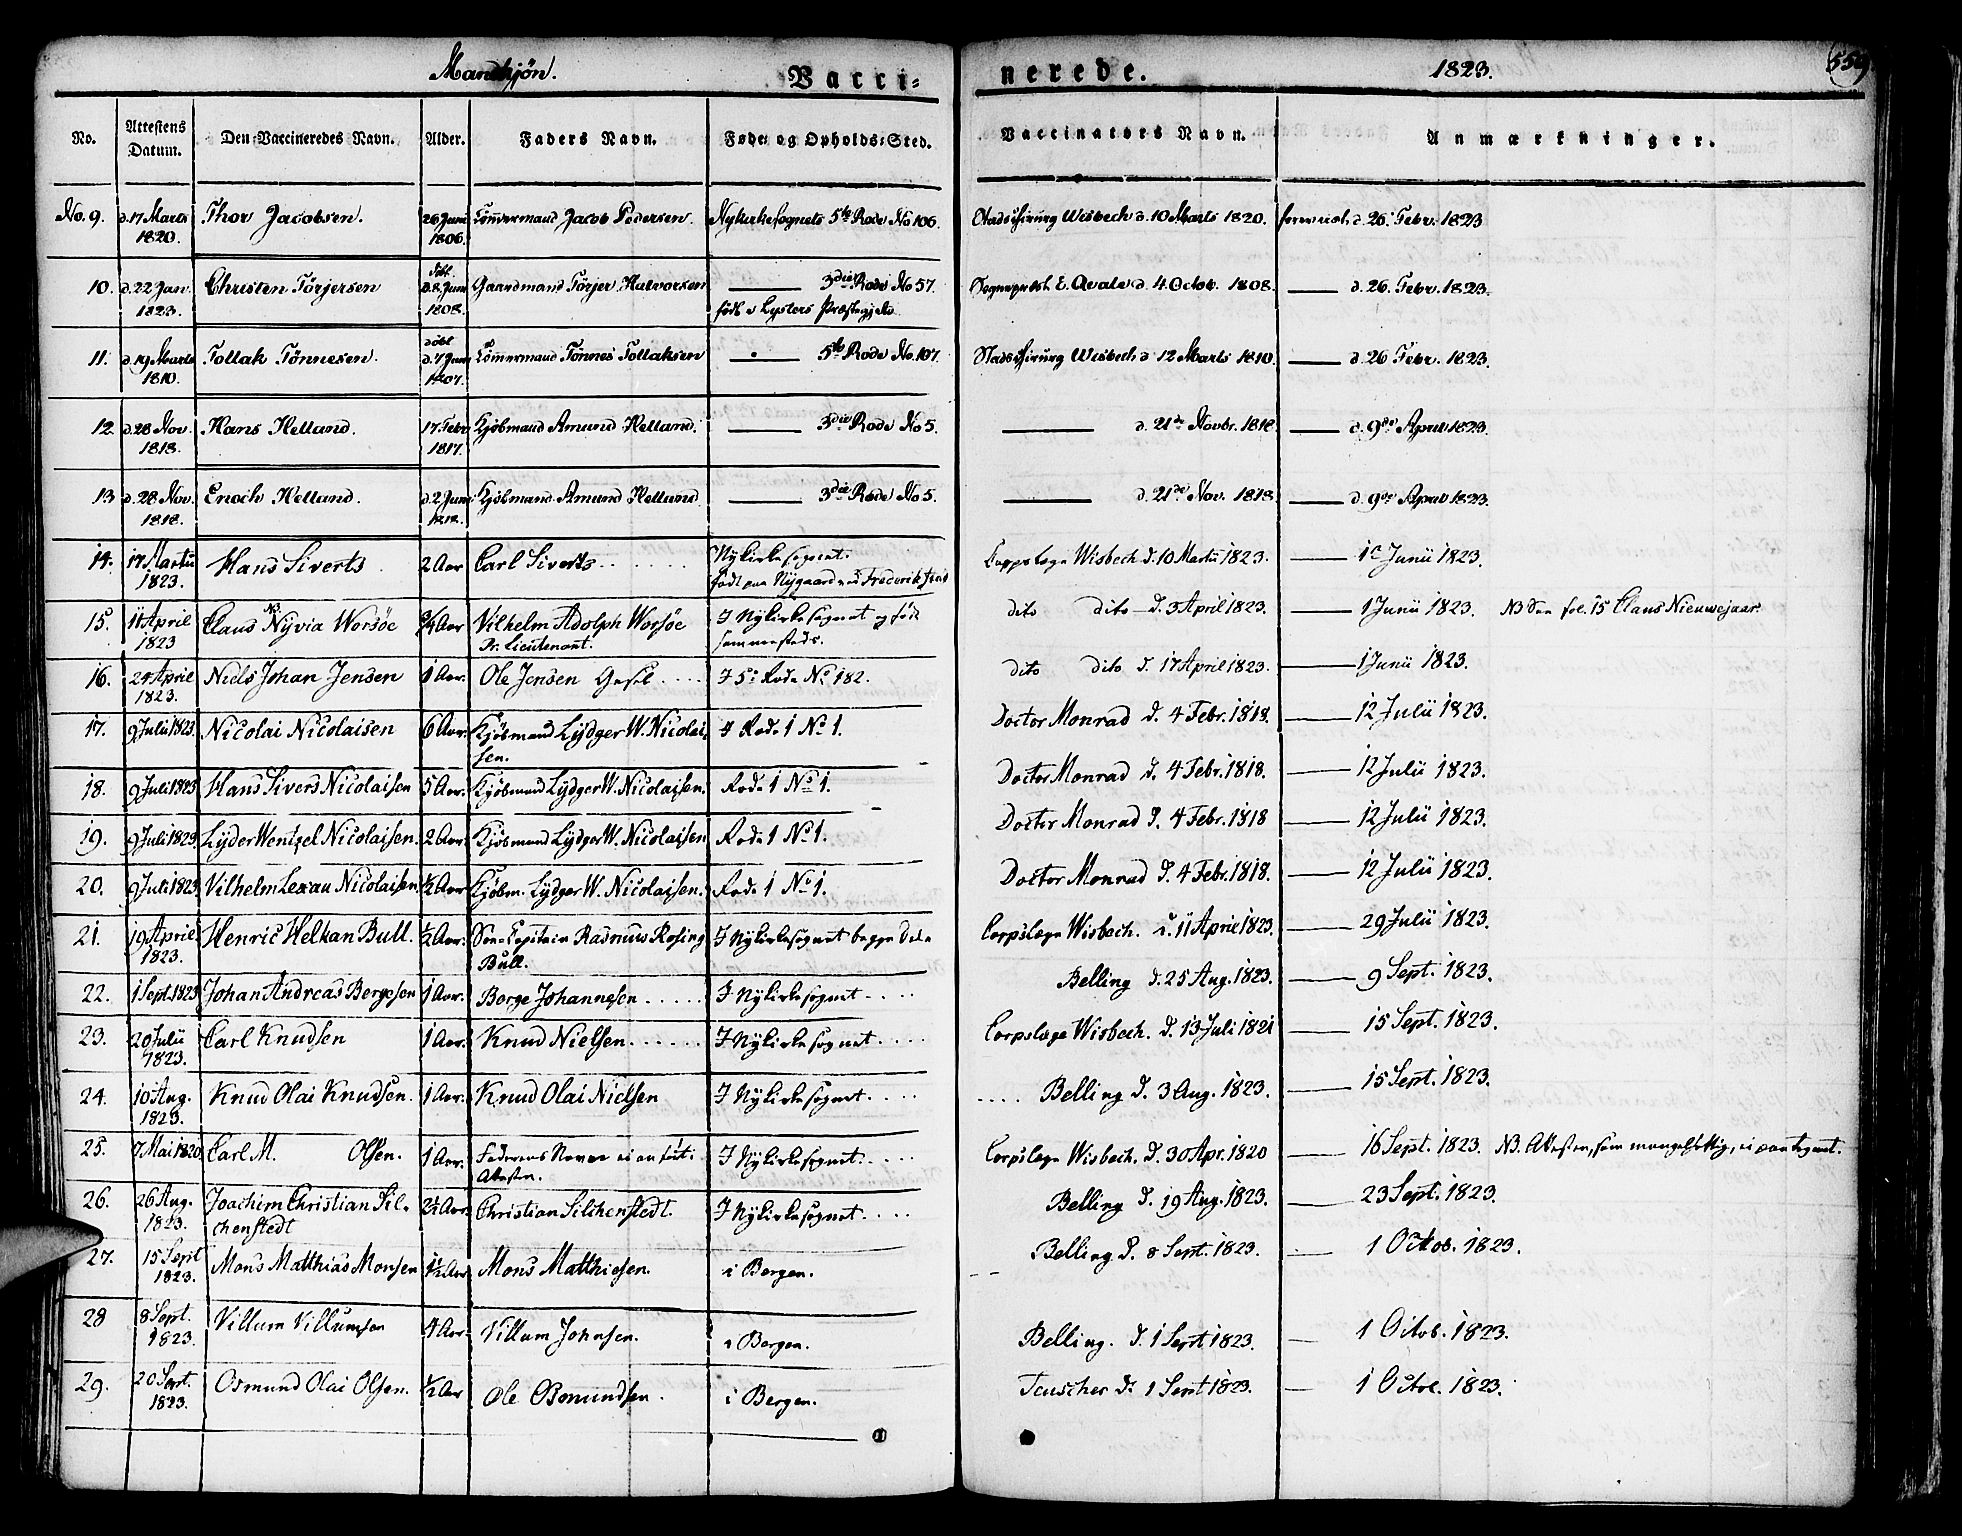 Mandkjön. Vacci= nerede. 1823. 559
No. Attestens Datum. Den Vaccineredes Navn. Alder. Faders Navn. Føde= og Opholds=Sted. Vaccinators Navn. Anmærkninger.
No. 9. d. 17 Marts Thor Jacobsen. 26 Juni Tömmermand Jacob Pedersen. Nykirkesognets 5te Rode No 106. Stadschirurg Wisbech d. 10 Marts 1820. d. 26. Febr. 1823
1820. 1806.
10. d. 22 Jan. Christen Törjersen döbt d. 8. Juni Gaardmand Törjer Halvorsen 3die Rode No 57. E. Qvale d. 4. Octob. 1808. d. 26. Febr. 1823.
1823. 1808. föd i Lysters Præstegjeld
11. d. 19 Marts Tollak Tönnesen. döbt d. 7 Juni Tömmermand Tönnes Tollaksen 5te Rode No. 107. Stadschirurg Wisbech d. 12 Marts 1810. d. 26 Febr. 1823.
1810. 1807.
12. d. 28 Nov. Hans Helland. 17. Febr Kjöbmand Amund Helland. 3die Rode No 5. d. 21de Novbr. 1818 d. 9de April 1823.
1818. 1817.
13 d. 28 Nov. Enoch Helland. d. 2 Juni Kjöbmand Amund Helland 3die Rode No 5. d. 21de Nov. 1818 d. 9de April 1823.
1818. 1818.
14. 17 Martii Hans Siverts 2 Aar Carl Siverts Nykirkesognet. Wisbech d. 10 Martii 1823. 1e Junii 1823.
1823. født paa Nygaard ved
15. 11 April Claus NB. Nyvia Worsöe 3/4 Aar Vilhelm Adolph Worsöe I Nykirkesognet og föd dito dito d. 3 April 1823. 1 Junii 1823. NB Claus Nieuwejaar.
1823 Pr. Lieutenant. sammesteds.
16. 24 April Niels Johan Jensen 1 Aar. Ole Jensen I 5te Rode No 182. dito dito d. 17 April 1823. 1 Junii 1823.
1823.
17. 9 Julii 1823. Nicolai Nicolaisen 6 Aar. Kjöbmand Lydger W. Nicolai= I Rode 1 No 1. Doctor Monrad d. 4 Febr. 1818. 12 Julii 1823.
sen.
18. 9 Juli 1823 Hans Sivers Nicolaisen 5 Aar. Kjöbmand Lydger W. Nicolaisen. Rode 1 No 1. Doctor Monrad d. 4 Febr. 1818. 12 Julii 1823.
19. 9 Juli 1823. Lyder Wentzel Nicolaisen. 2 Aar. Kjöbmand Lydger W. Nicolaisen Rode 1 No 1. Doctor Monrad d. 4 Febr. 1818 12 Julii 1823.
20. 9 Juli 1823 Vilhelm Lexau Nicolaisen 1/2 Aar Kjöbm. Lydger W. Nicolaisen. Rode 1 No 1. Doctor Monrad d. 4 Febr. 1818. 12 Julii 1823.
21. 19 April Henric Helkan Bull. 1/2 Aar. Söe=Capitain Rasmus Rosing I Nykirkesognet begge Dele Corpslæge Wisbech. d. 11 April 1823. 29 Julii 1823.
1823. Bull.
22. 1 Sept. 1823 Johan Andreas Bergesen 1 Aar. Borge Johannesen I Nykirkesognet Belling d. 25 Aug. 1823. 9 Sept. 1823.
23. 20 Julii Carl Knudsen 1 Aar. Knud Nielsen I Nykirkesognet Corpslæge Wisbech. d. 13 Juli 1821 15 Sept. 1823.
1823.
24. 10 Aug. Knud Olai Knudsen. 1 Aar. Knud Olai Nielsen I Nykirkesognet Belling d. 3 Aug. 1823. 15 Sept. 1823.
1823.
25. 7 Mai 1820 Carl M. Olsen. 1 Aar. Faderens Navn ei anført i I Nykirkesognet. Corpslæge Wisbech. d. 30 Apr. 1820 16 Sept. 1823. NB. Attesten, som mangelfuldig, ei paategnet.
Attesten.
26. 26 Aug. Joachim Christian Sil= 2 1/2 Aar. Christian Silchenstedt. I Nykirkesognet Belling d. 19 Aug. 1823. 23 Sept. 1823.
1823. chenstedt
27. 15 Sept Mons Matthias Monsen 1 1/2 Aar Mons Matthiesen. i Bergen. Belling d. 8 Sept. 1823. 1 Octob. 1823.
1823.
28 8 Sept. Villum Villumsen 4 Aar. Villum Johnsen. i Bergen. Belling. d. 1 Sept 1823. 1 Octob. 1823.
1823.
29. 20 Sept. Osmund Olai Olsen. 1/2 Aar Ole Osmundsen. i Bergen. Teuscher d. 1 Sept 1823. 1 Octob. 1823.
1823.